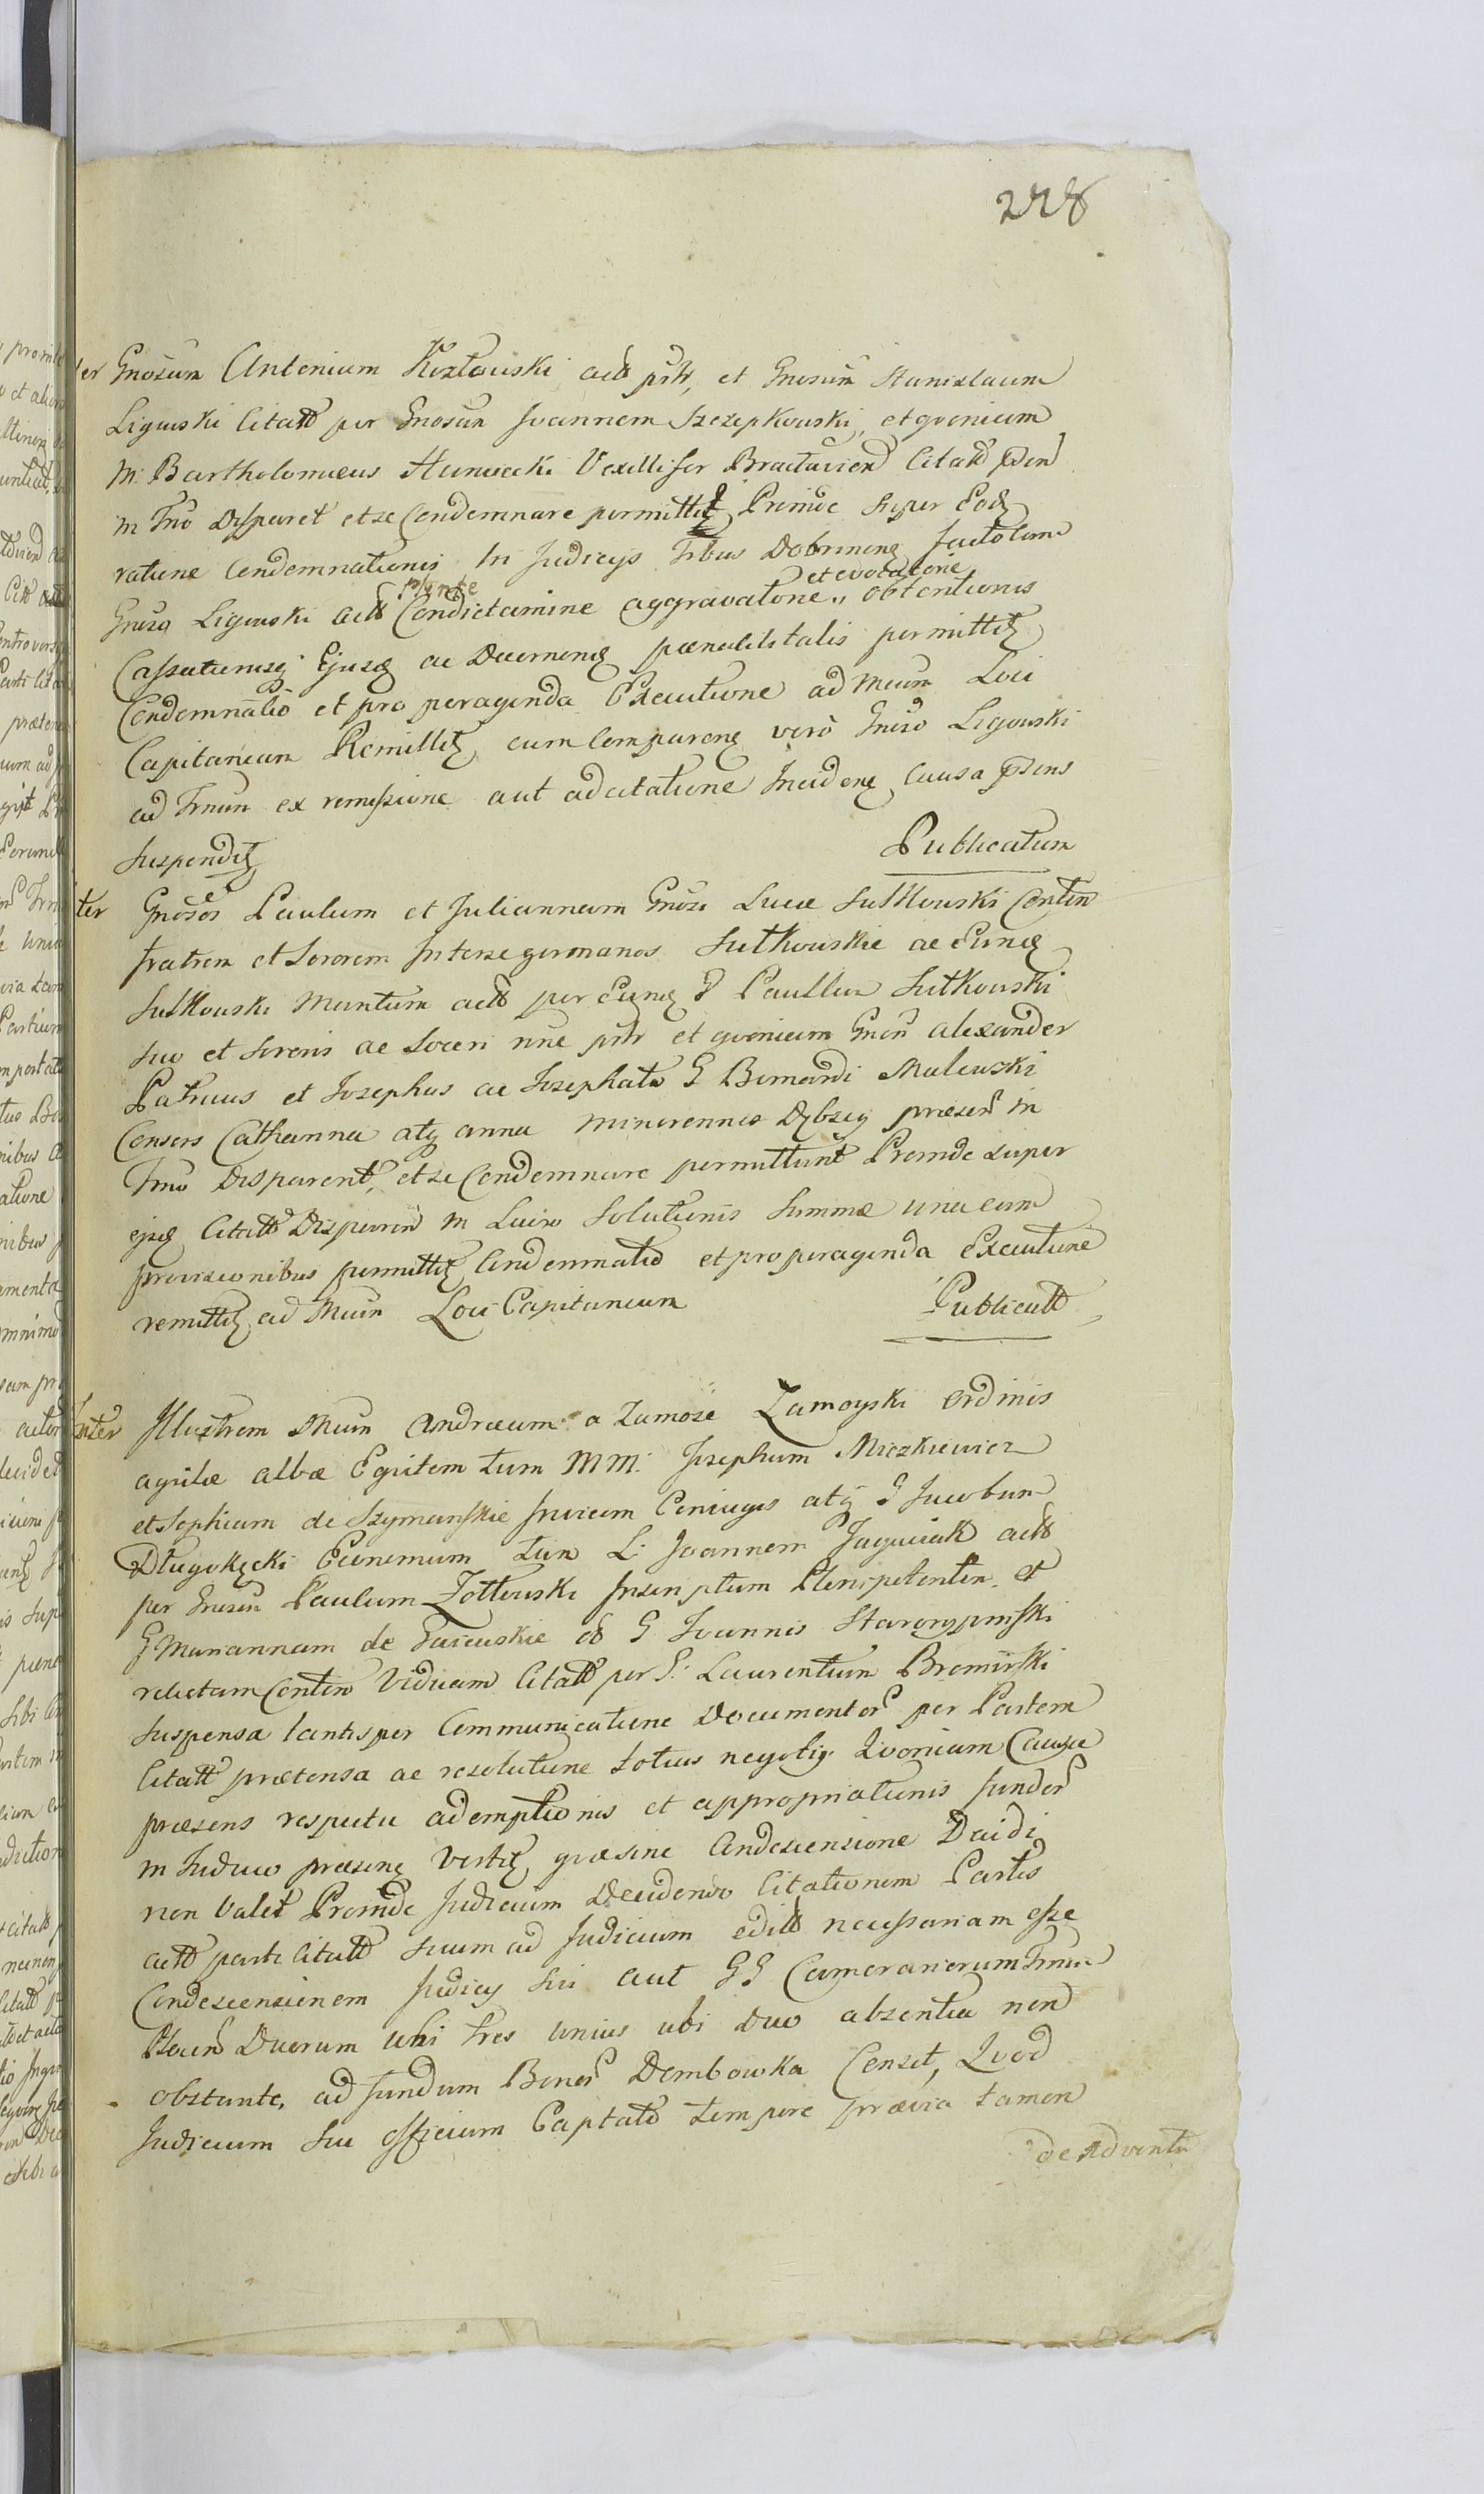 228
ter Gnosum Antonium Kozłowski act prtr, et Gnosum Stanislaum
Ligowski Citatt per Gnosum Joannem Szczepkowski, et qvoniam
M. Bartholomæus Hunicki Vexillifer Bractavien Citatt
in Tno Disparet et se Condemnare permittit, Proinde super Eodq
ratione Condemnationis In Judicijs Tribus Dobrinenq
Gnoso Ligowski act Condictamine aggravatone et evocatone obtentionis
Cassationisq Ejusq ac Decernenq pænalitatis permittitq
Condemnatio et pro peragenda Executione ad Mcum Loci
Capitaneum Remittitq, cum Comparenq vero Gnoso Ligowski
ad Trnum ex remissione aut adcitatione Incidenq Causa prsens
Suspenditq
Publicatum
ter Gnosos Paulum et Juliannam Gnosi Lucæ Sutkowski Conten
fratrem et Sororem Inter se germanos Sutkowskie ac Eunq
Sutkowski Maritum act per Eunq G Paullum Sutkowski
suo et Sororis ac Soceri nne prtr et qvoniam Gnosi Alexander
Patruus et Josephus ac Josephata G Bernardi Malewski
Consors Catharina atq anna minorennes Dybscy præsen in
Trno Disparent, et se Condemnare permittunt Proinde super
ejsq Citatt Disparen in Lucro Solutionis Summæ una cum
provisionibus permittitq Condemnatio et pro peragenda Executione
remittitq ad Mcum Loci Capitaneum
Publicatt
Inter Illustrem Mcum Andræum a Zamosc Zamoyski Ordinis
aqvilæ albæ Eqvitem tum MM. Josephum Miczkiewicz
et Sophiam de Szymanskie Invicem Coniuges atq G Jacobum
Długokęcki Œconomum tum L. Joannem Jagusiak act
per Gnosum Paulum Zółtowski Inscriptum Plenipotenten, et
G Mariannam de Guiewskie G Joannis Staronypinski
relictam Conten Viduam Citatt per G. Laurentium Bromirski
Suspensa tantisper Communicatione Documentor per Partem
Citatt prætensa ac resolutione totius negotij. Qvoniam Causa
præsens respectu ademptionis et appropriationis fundor
in Judicio præsenq Vertitq quæ sine Condescensione Decidi
non Valet Proinde Judicium Decidendo Citationem Partis
actt parti Citatt suum ad Judicium editt necessariam esse
Condescensionem Judicij sui aut GG Camerariorum Trnin
Plocen Duorum ubi tres unius ubi duo absentia non
obstante, ad fundum Bonor Dembowka Censet, Qvod
Judicium seu officium Captato tempore prævia tamen
de Adventu